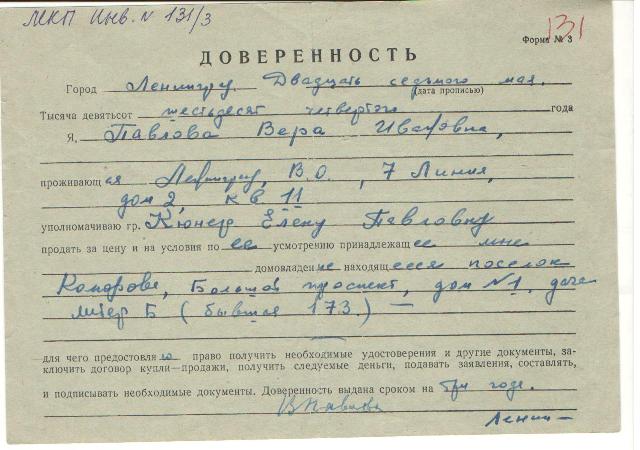 ЛКП Инв. N 131/3
131
Форма № 3
ДОВЕРЕННОСТЬ
Город Ленинград. Двадцать седьмого мая.
(дата прописью)
Тысяча девятьсот шестьдесят четвертого года
Я, Павлова Вера Ивановна,
проживающая Ленинград, В.О., 7 Линия,
дом 2, кв 11
уполномачиваю гр. Кюнер Елену Павловну
продать за цену и на условия по ее усмотрению принадлежащее мне
домовладение находящееся поселок
Комарово, Большой проспект, дом №1. дача
литер Б (бывшая 173.) —
для чего предоставляю право получить необходимые удостоверения и другие документы, за-
ключить договор купли—продажи, получить следуемые деньги, подавать заявления, составлять,
и подписывать необходимые документы. Доверенность выдана сроком на три года.
ВПавлова
Ленин—